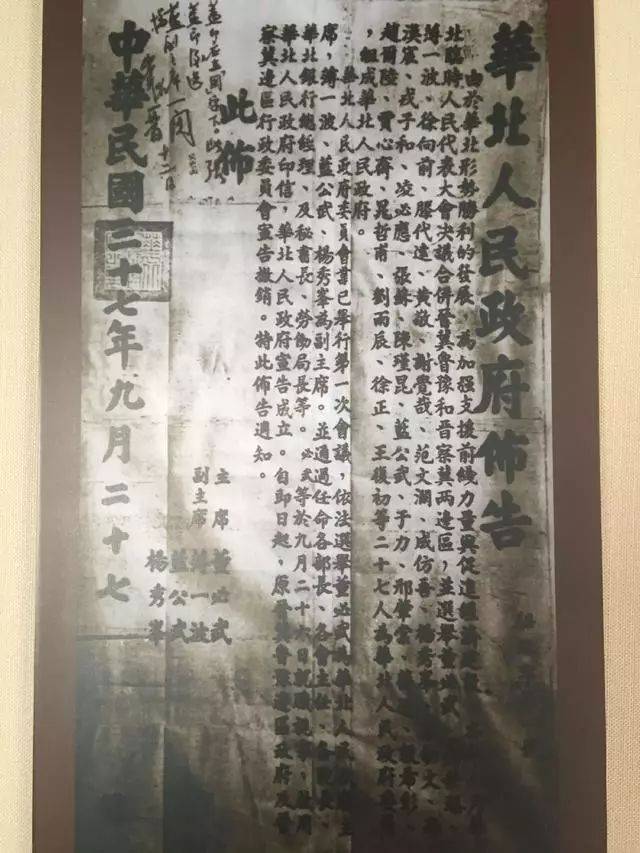 華北人民政府佈告
由於華北形勢勝利的發展，為加强支援前綫力量與促進經濟
北臨時人民代表大會决議合併晉冀魯豫和晉察冀兩邊區，並選舉董必武、
薄一波、徐向前、滕代遠、黃敬、謝覺哉、范文瀾、成仿吾、楊秀峯、
漢宸、戎子和、凌必應、張蘇、陳瑾昆、藍公武、于力、邢肇棠、殷希彭、
趙爾陸、賈心齋、晁哲甫、劉雨辰、徐正、王復初等二十七人為華北人民政府委員
，組成華北人民政府。
華北人民政府委員會業已舉行第一次會議，依法選舉董必武為華北人民政府主
席，薄一波、藍公武、楊秀峯為副主席。並通過任命各部長、各會主任、各院長、
華北銀行總經理、及秘書長、勞働局長等。必武等於九月二十六日就職視事，啟用
華北人民政府印信，華北人民政府宣告成立。自即日起，原晉冀魯豫邊區政府及晉
察冀邊區行政委員會宣告撤銷。特此佈告週知。
此佈
主席 董必武
副主席 薄一波
藍公武
楊秀峯
中華民國三十七年九月二十七